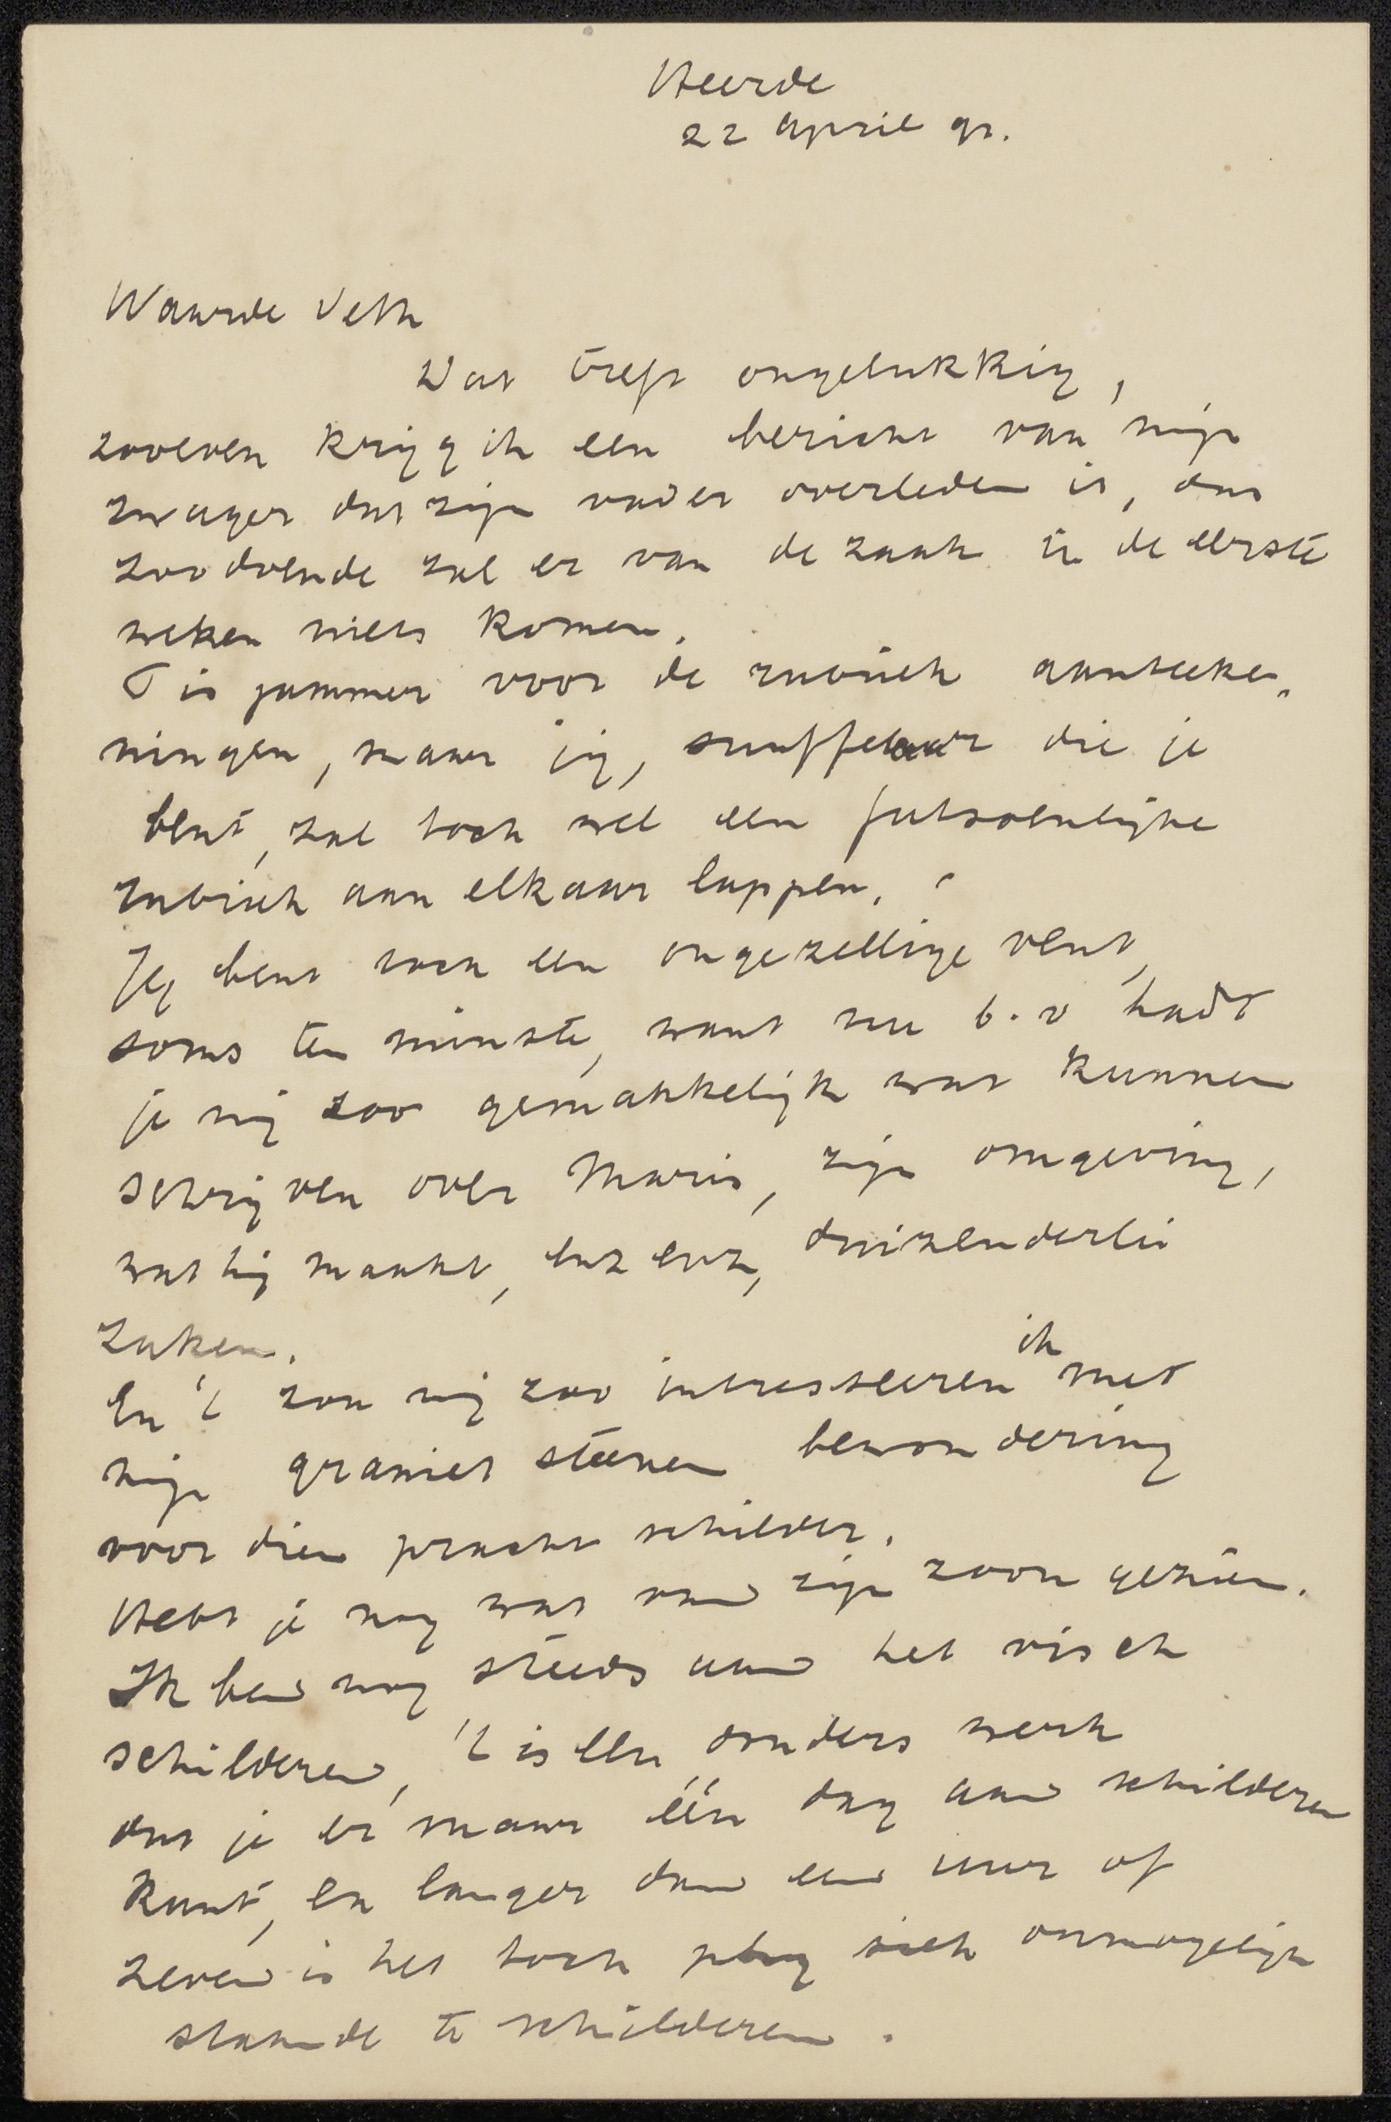 Heerde
22 April 91.
Waarde Veth
Dat treft ongelukkig,
zooeven krijg ik een bericht van mijn
zwager dat zijn vader overleden is, dus
zoodoende zal er van de zaak in de eerste
weken niets komen.
T is jammer voor de rubriek aanteeke„
ningen, maar jij, snuffelaar die je
bent, zal toch wel een fatsoenlijke
rubriek aan elkaar lappen.
Jij bent toch een ongezellige vent,
soms ten minste, want nu b.v hadt
je mij zoo gemakkelijk wat kunnen
schrijven over Maris, zijn omgeving,
wat hij maakt, enz enz, duizenderlei
zaken.
En 't zou mij zoo intresseeren ik met
mijn graniet steenen bewondering
voor dien pracht schilder.
Hebt je nog wat van zijn zoon gezien.
Ik ben nog steeds aan het visch
schilderen, 't is een donders werk
dat je er maar één dag aan schilderen
kunt, en langer dan een uur of
zeven is het toch physiek onmogelijk
staande te schilderen.